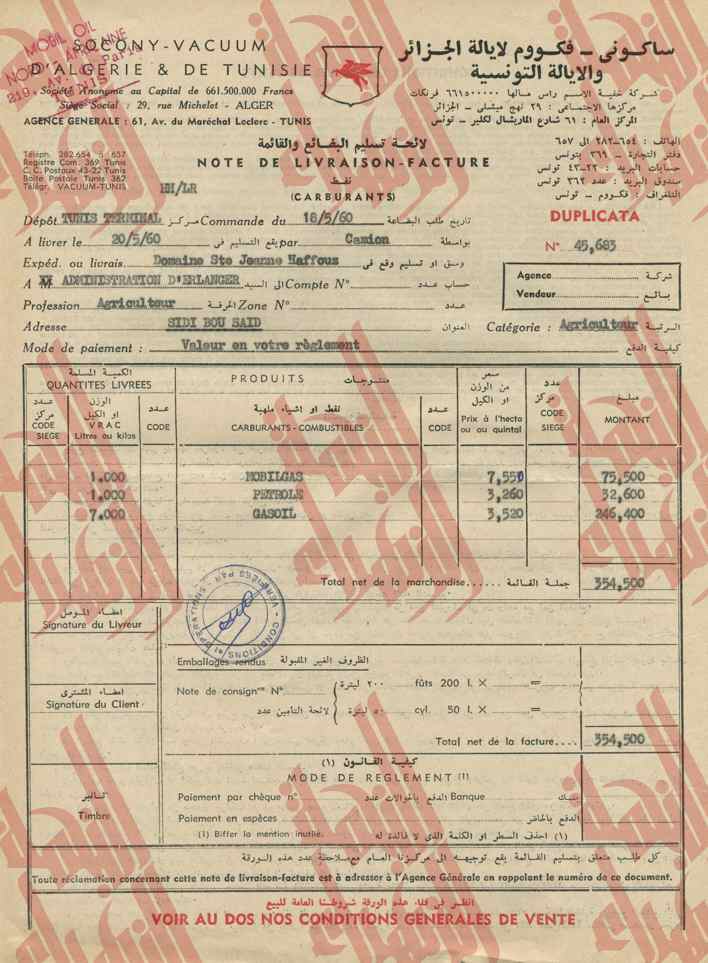 MOBIL OIL
SOCONY-VACUUM
D'ALGÉRIE & DE TUNISIE
Société Anonyme au Capital de 661.500.000 Francs
Siège Social : 29, rue Michelet - ALGER
AGENCE GENERALE : 61, Av. du Maréchal Leclerc - TUNIS
ساكونى - فكووم لايالة الجزائر
والايالة التونسية
شركة خفية الاسم راس مالها ٦٦١٥٠٠٠٠٠ فرنكات
مركزها الاجتماعي : ٢٩ نهج ميشلى - الجزائر
المركز العام : ٦١ شارع الماريشال لكلير - تونس
لائحة تسليم البضائع والقائمة
NOTE DE LIVRAISON-FACTURE
نفط
(CARBURANTS)
Téléph. 282.654 à 657
Registre Com. 369 Tunis
C. C. Postaux 43-22 Tunis
Boîte Postale Tunis 362
Télégr. VACUUM-TUNIS
HH/LR
الهاتف : ٦٥٤-٢٨٢ الى ٦٥٧
دفتر التجارة - ٣٦٩ بتونس
حسابات البريد : ٢٢-٤٣ تونس
صندوق البريد : عدد ٣٦٢ تونس
التلغراف : فكووم - تونس
DUPLICATA
N° 45,683
Dépôt TUNIS TERMINAL مركز Commande du 18/5/60 تاريخ طلب البضاعة
A livrer le 20/5/60 يقع التسليم في par Camion بواسطة
Expéd. ou livrais. Domaine Ste Jeanne Haffouz وسق او تسليم وقع في
A M ADMINISTRATION D'ERLANGER الى السيد Compte N° حساب عدد
Profession Agriculteur الحرفة Zone N° عدد
Adresse SIDI BOU SAID العنوان
Agence شركة
Vendeur بائع
Catégorie : Agriculteur الرتبة
Mode de paiement : Valeur en votre règlement كيفية الدفع
الكمية المسلمة
QUANTITES LIVREES
عدد مركز
CODE SIEGE
الوزن او الكيل
VRAC
Litres ou kilos
عدد
CODE
PRODUITS منتوجات
نفط او اشياء ملهبة
CARBURANTS - COMBUSTIBLES
عدد
CODE
سعر من الوزن او الكيل
Prix à l'hecto
ou au quintal
عدد مركز
CODE SIEGE
مبلغ
MONTANT
1.000 MOBILGAS 7,550 75,500
1.000 PETROLE 3,260 32,600
7.000 GASOIL 3,520 246,400
Total net de la marchandise...... جملة القائمة 354,500
امضاء الموصل
Signature du Livreur
CONDITIONS et OPERATIONS - VERIFIEES PAR
Emballages rendus الظروف الغير المقبولة
Note de consign N° لائحة التأمين عدد
٢٠٠ ليترة fûts 200 l. X =
٥٠ ليترة cyl. 50 l. X =
امضاء المشترى
Signature du Client
Total net de la facture.... 354,500
كيفية القانون (١)
MODE DE REGLEMENT (1)
Paiement par chèque n° الدفع بالحوالات عدد Banque بنك
Paiement en espèces الدفع بالحاضر
(1) Biffer la mention inutile. (١) احذف السطر او الكلمة الذي لا فائدة له
Timbre
كل طلب متعلق بتسليم القائمة يقع توجيهه الى مركزنا العام مع ملاحظة عدد هذه الورقة
Toute réclamation concernant cette note de livraison-facture est à adresser à l'Agence Générale en rappelant le numéro de ce document.
انظر في قفاء هذه الورقة شروطنا العامة للبيع
VOIR AU DOS NOS CONDITIONS GENERALES DE VENTE